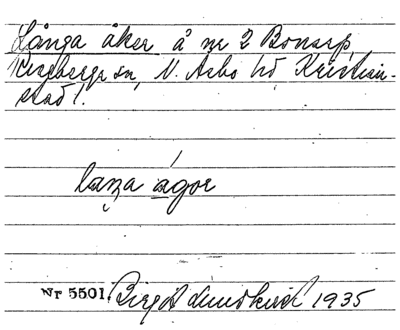 Långa åker å nr 2 Bonarp,
Vegeberga sn, V. Asbo hd Kristian-
stad l.
laŋa ågor
Nr 5501. Birgit Lundkvist 1935